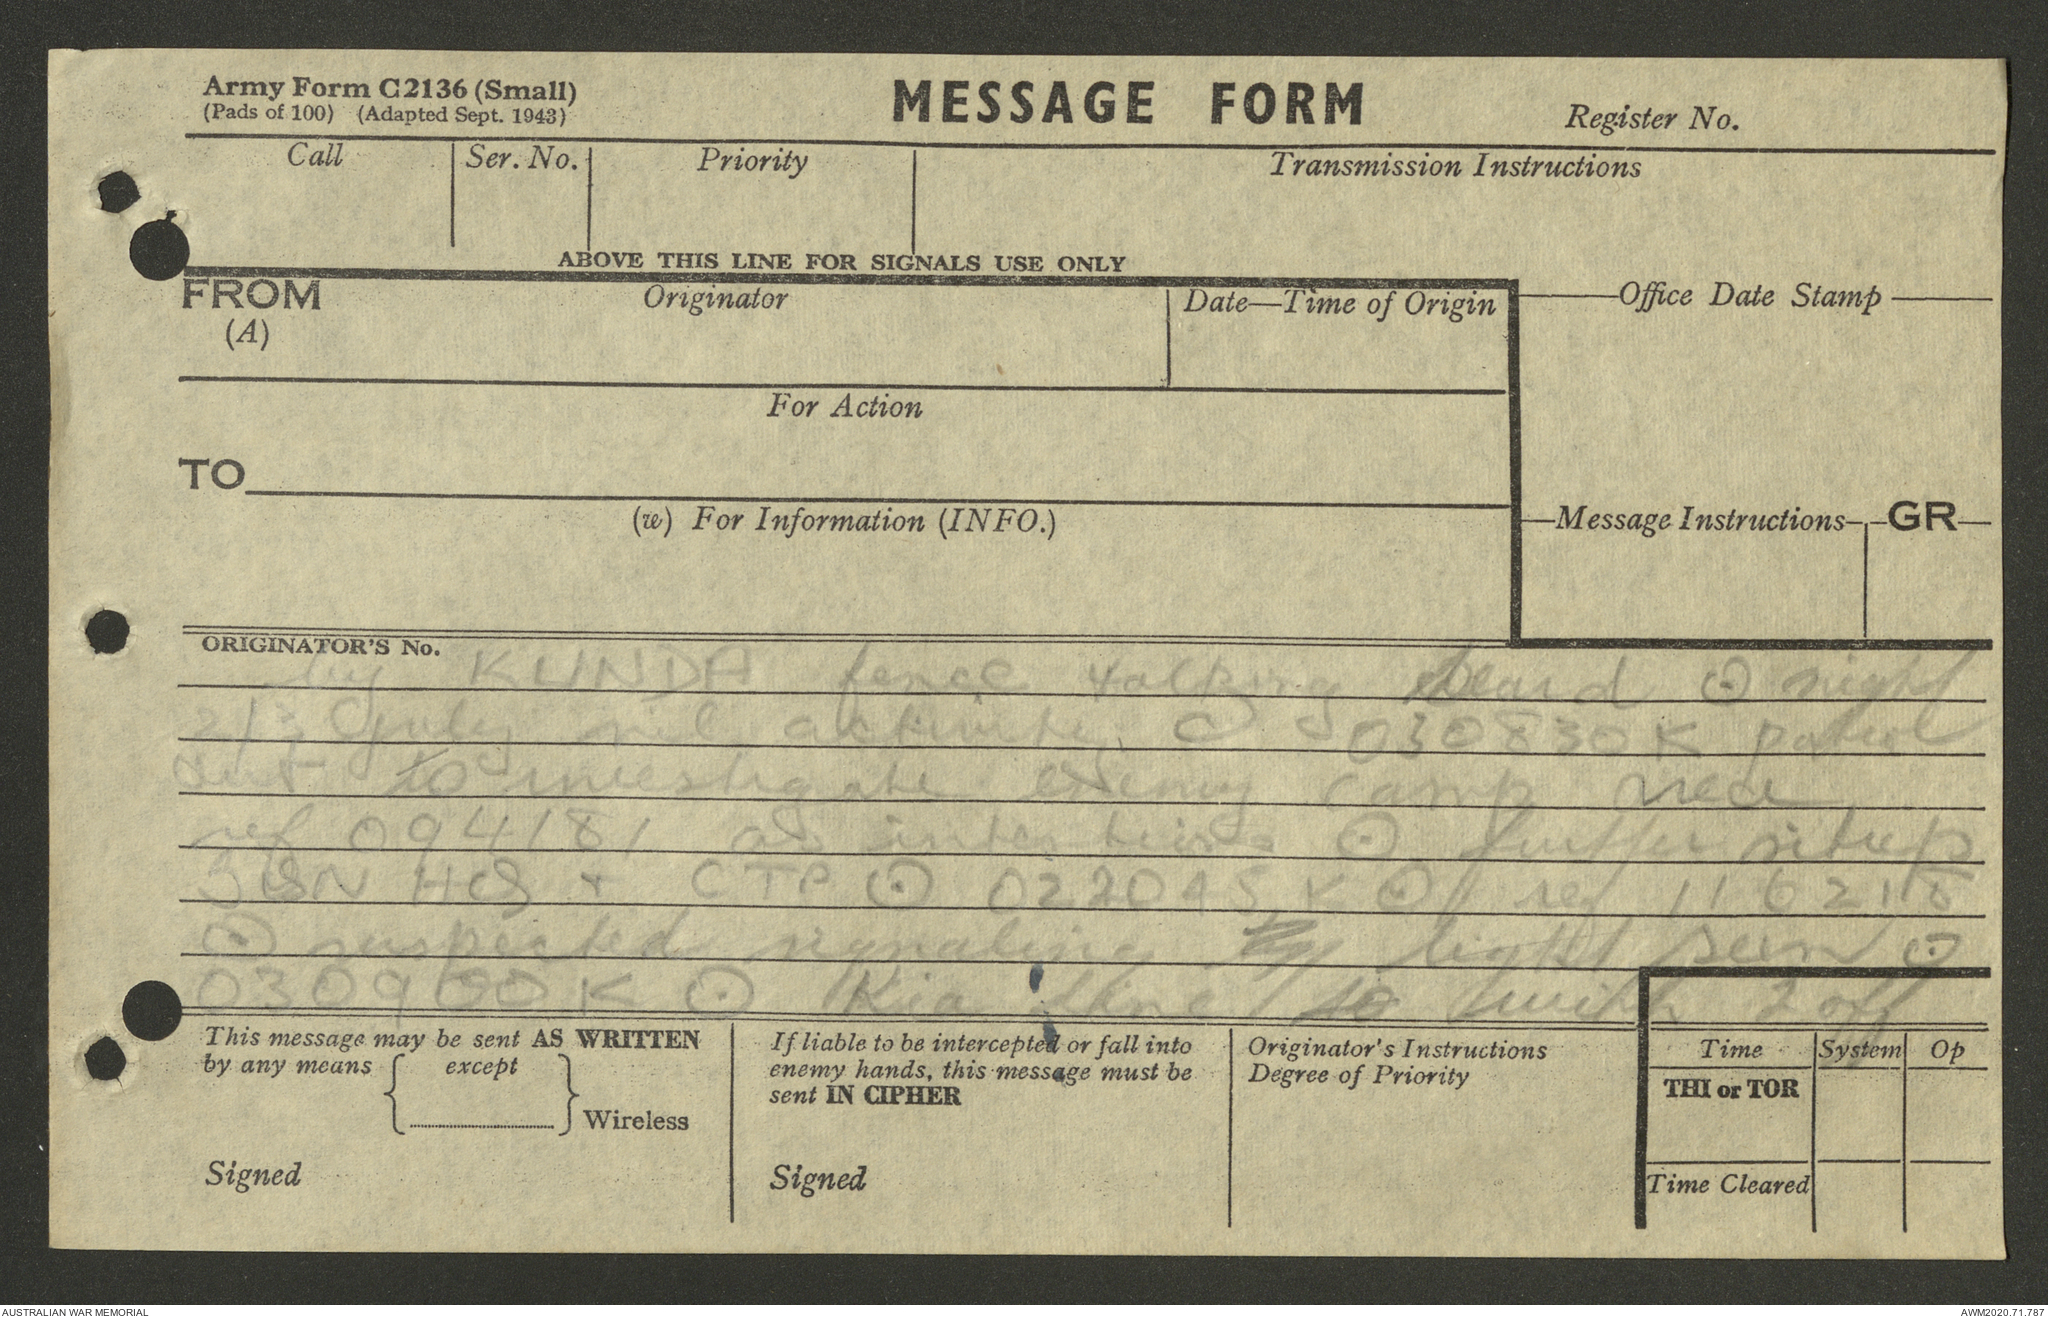 Army Form C2136 (Small)
(Pads of 100) (Adapted Sept. 1943)
MESSAGE FORM
Register No.
Call
Ser. No.
Priority
Transmission Instructions
ABOVE THIS LINE FOR SIGNALS USE ONLY
FROM
(A)
Originator
Date—Time of Origin
Office Date Stamp
For Action
TO
(w) For Information (INFO.)
Message Instructions
GR
ORIGINATOR'S No.
by KUNDA fence talking heard ⊙ night
2/3 July nil activity ⊙ 030830K patrol
out to investigate enemy camp
ref 094181 ⊙ further sitrep
HQ + CTP ⊙ 022045K ⊙ ref 116218
⊙ suspected signaling by light seen ⊙
030900K ⊙ Kia line to with 2 off
This message may be sent AS WRITTEN
by any means { except } Wireless
Signed
If liable to be intercepted or fall into
enemy hands, this message must be
sent IN CIPHER
Signed
Originator's Instructions
Degree of Priority
Time
System
Op
THI or TOR
Time Cleared
AUSTRALIAN WAR MEMORIAL
AWM2020.71.787